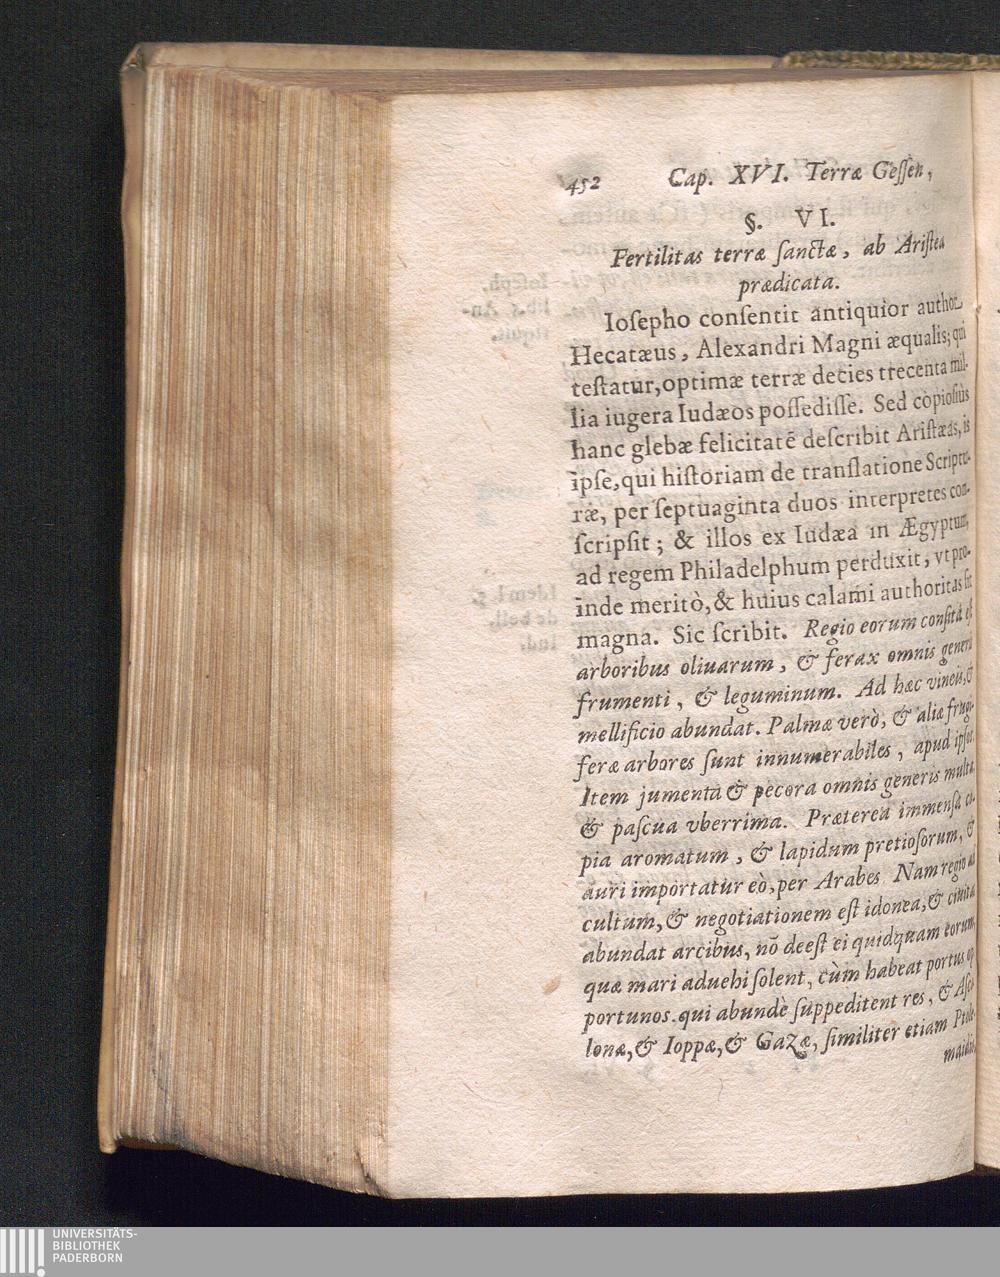 452 Cap. XVI. Terræ Geſſen,
§. VI.
Fertilitas terræ ſanctæ, ab Ariſtea
prædicata.
Ioſepho conſentit antiquior author
Hecatæus, Alexandri Magni æqualis; qui
teſtatur, optimæ terræ decies trecenta mil-
lia iugera Iudæos poſſediſſe. Sed copioſiùs
hanc glebæ felicitatẽ deſcribit Ariſtæas, is
ipſe, qui hiſtoriam de tranſlatione Scriptu-
ræ, per ſeptuaginta duos interpretes con-
ſcripſit; & illos ex Iudæa in Ægyptum,
ad regem Philadelphum perduxit, vt pro-
inde meritò, & huius calami authoritas ſit
magna. Sic ſcribit. Regio eorum conſita eſt
arboribus oliuarum, & ferax omnis generis
frumenti, & leguminum. Ad hæc vineis, &
mellificio abundat. Palmæ verò, & aliæ frugi-
feræ arbores ſunt innumerabiles, apud ipſos.
Item jumenta & pecora omnis generis multa,
& paſcua vberrima. Præterea immenſa co-
pia aromatum, & lapidum pretioſorum, &
auri importatur eò, per Arabes. Nam regio ad
cultum, & negotiationem eſt idonea, & ciuitas
abundat arcibus, nõ deeſt ei quidquam eorum,
quæ mari aduehi ſolent, cùm habeat portus op-
portunos. qui abundè ſuppeditent res, & Aſca-
lonæ, & Ioppæ, & Gazæ, ſimiliter etiam Ptole-
maidis
UNIVERSITÄTS-
BIBLIOTHEK
PADERBORN